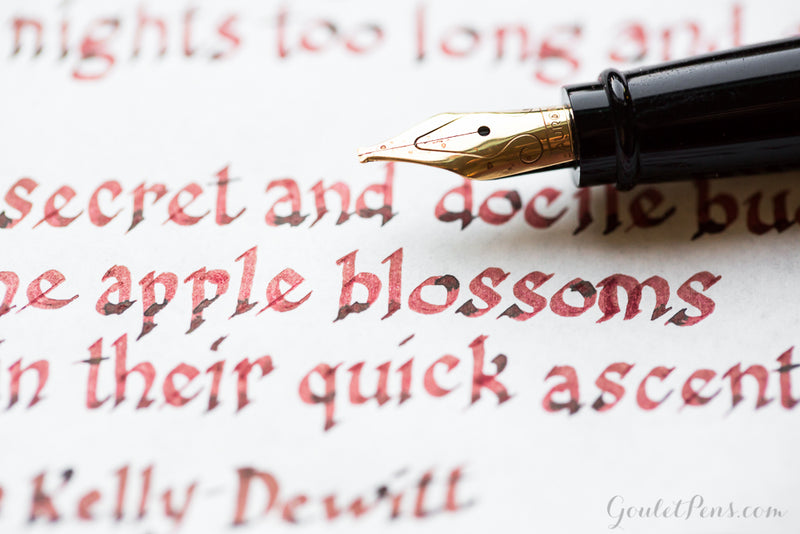 nights too long and
secret and docile bud
he apple blossoms
in their quick ascent
Kelly-Dewitt
GouletPens.com